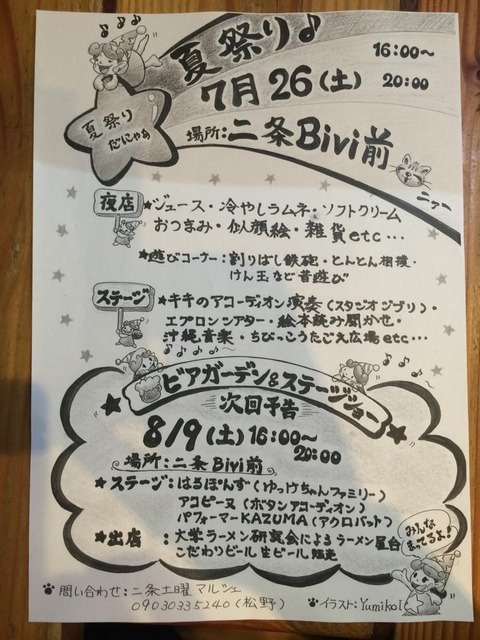 夏祭り♪
16:00～
7月26(土)
20:00
場所:二条Bivi前
夏祭り
だにゃあ
ニャー
夜店
★ジュース・冷やしラムネ・ソフトクリーム
おつまみ・似顔絵・雑貨etc…
★遊びコーナー:割りばし鉄砲・とんとん相撲・
けん玉など昔遊び
ステージ
★キキのアコーディオン演奏(スタジオジブリ)・
エプロンシアター・絵本読み聞かせ・
沖縄音楽・ちびっこうたごえ広場etc…
ビアガーデン&ステージショー
次回予告
8/9(土)16:00～
20:00
場所:二条Bivi前
★ステージ:はろぽんず(ゆっけちゃんファミリー)
アコピーヌ(ボタンアコーディオン)
パフォーマーKAZUMA(アクロバット)
★出店:大学ラーメン研究会によるラーメン屋台
こだわりビール 生ビール 販売
みんな
まってるよ!
問い合わせ:二条土曜マルシェ
09030335240(松野)
イラスト:Yumiko I